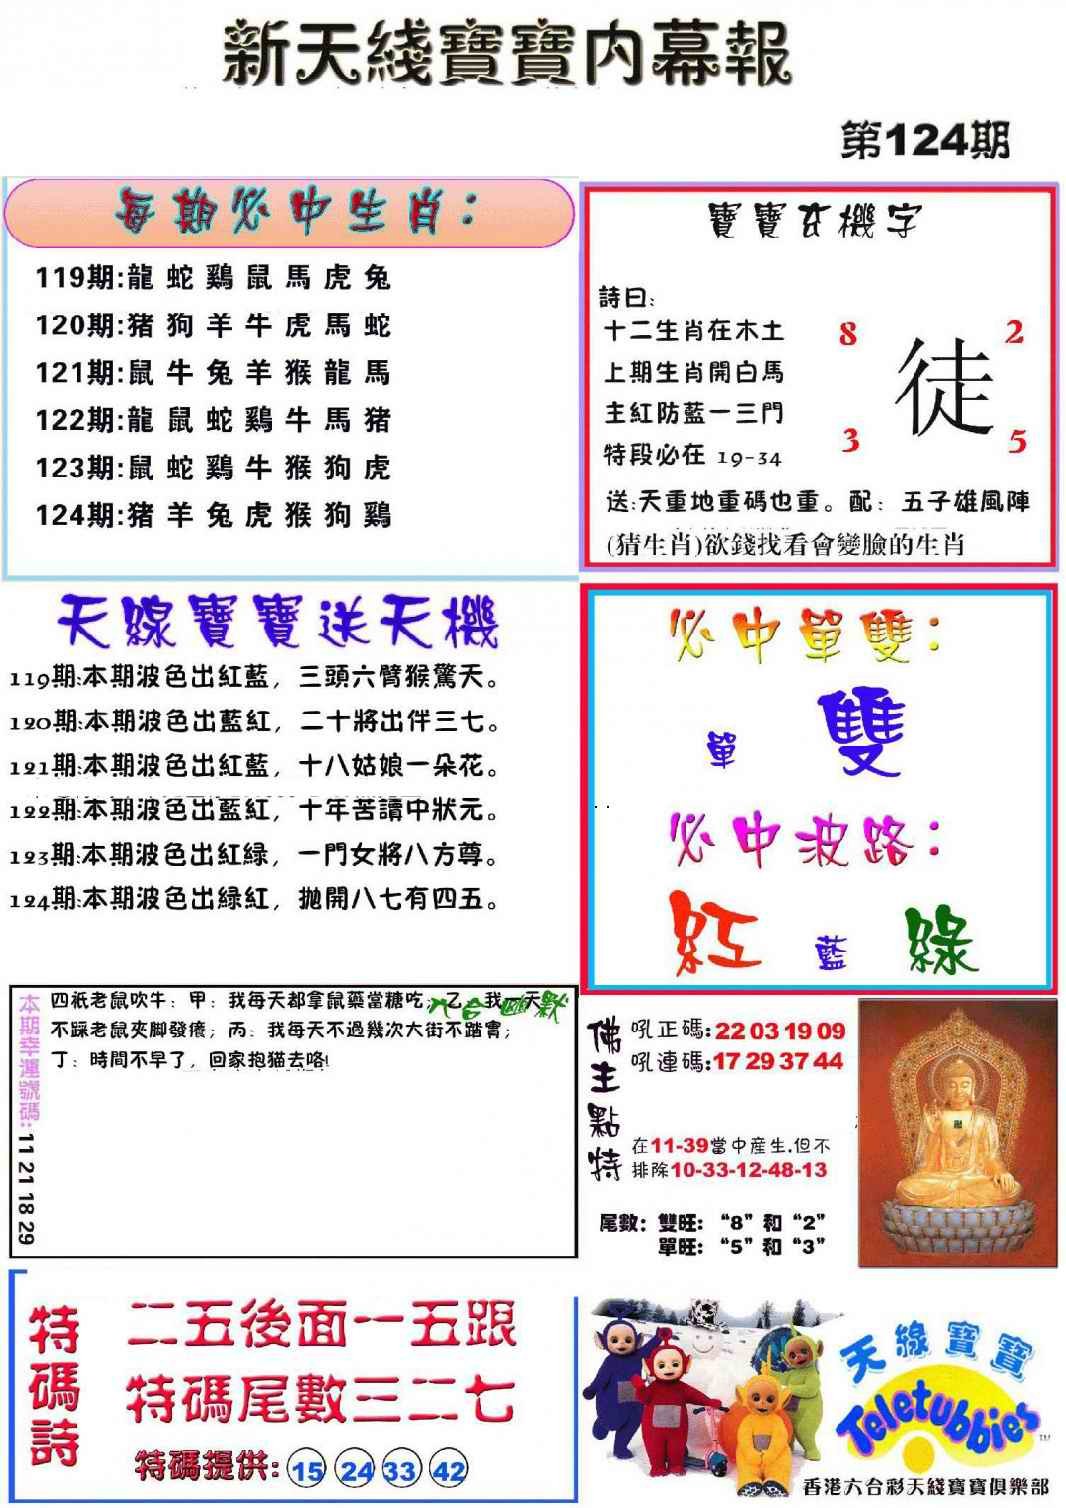 新天綫寶寶内幕報
第124期
每期必中生肖：
119期:龍 蛇 鷄 鼠 馬 虎 兔
120期:猪 狗 羊 牛 虎 馬 蛇
121期:鼠 牛 兔 羊 猴 龍 馬
122期:龍 鼠 蛇 鷄 牛 馬 猪
123期:鼠 蛇 鷄 牛 猴 狗 虎
124期:猪 羊 兔 虎 猴 狗 鷄
寶寶玄機字
詩曰:
十二生肖在木土
上期生肖開白馬
主紅防藍一三門
特段必在 19-34
8 2
徒
3 5
送:天重地重碼也重。配: 五子雄風陣
(猜生肖)欲錢找看會變臉的生肖
天線寶寶送天機
119期:本期波色出紅藍, 三頭六臂猴驚天。
120期:本期波色出藍紅, 二十將出伴三七。
121期:本期波色出紅藍, 十八姑娘一朵花。
122期:本期波色出藍紅, 十年苦讀中狀元。
123期:本期波色出紅緑, 一門女將八方尊。
124期:本期波色出緑紅, 拋開八七有四五。
必中單雙：
單 雙
必中波路：
紅 藍 綠
本期幸運號碼: 11 21 18 29
六合幽默
四祇老鼠吹牛: 甲: 我每天都拿鼠藥當糖吃; 乙: 我一天
不踩老鼠夾脚發癢; 丙: 我每天不過幾次大街不踏實;
丁: 時間不早了, 回家抱猫去咯!
佛主點特
吼正碼: 22 03 19 09
吼連碼: 17 29 37 44
在11-39當中産生.但不
排除10-33-12-48-13
尾數: 雙旺: “8”和“2”
單旺: “5”和“3”
特碼詩
二五後面一五跟
特碼尾數三二七
特碼提供: 15 24 33 42
天線寶寶
Teletubbies
TM
香港六合彩天綫寶寶俱樂部